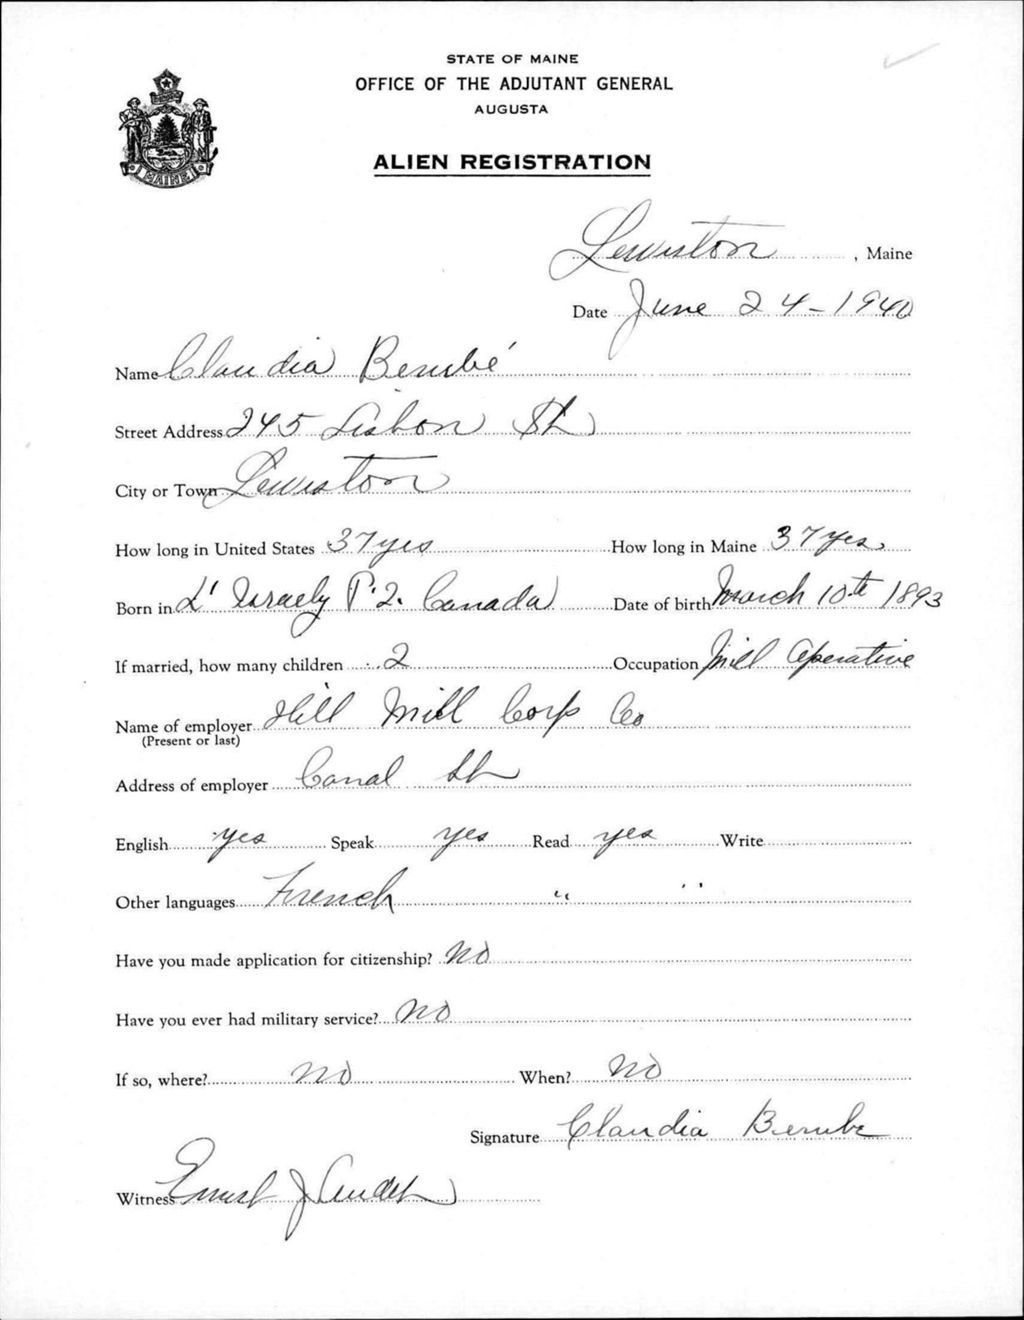 STATE OF MAINE
OFFICE OF THE ADJUTANT GENERAL
AUGUSTA
ALIEN REGISTRATION
MAINE
Lewiston, Maine
Date June 24-1940
Name Claudia Berubé
Street Address 245 Lisbon St
City or Town Lewiston
How long in United States 37 yrs How long in Maine 37 yrs
Born in P.Q. Canada Date of birth March 10th 1893
If married, how many children 2 Occupation Mill Operative
Name of employer Hill Mill Corp Co
(Present or last)
Address of employer Canal St
English yes Speak yes Read yes Write
Other languages French " "
Have you made application for citizenship? No
Have you ever had military service? No
If so, where? no When? No
Signature Claudia Berube
Witness Ernest J